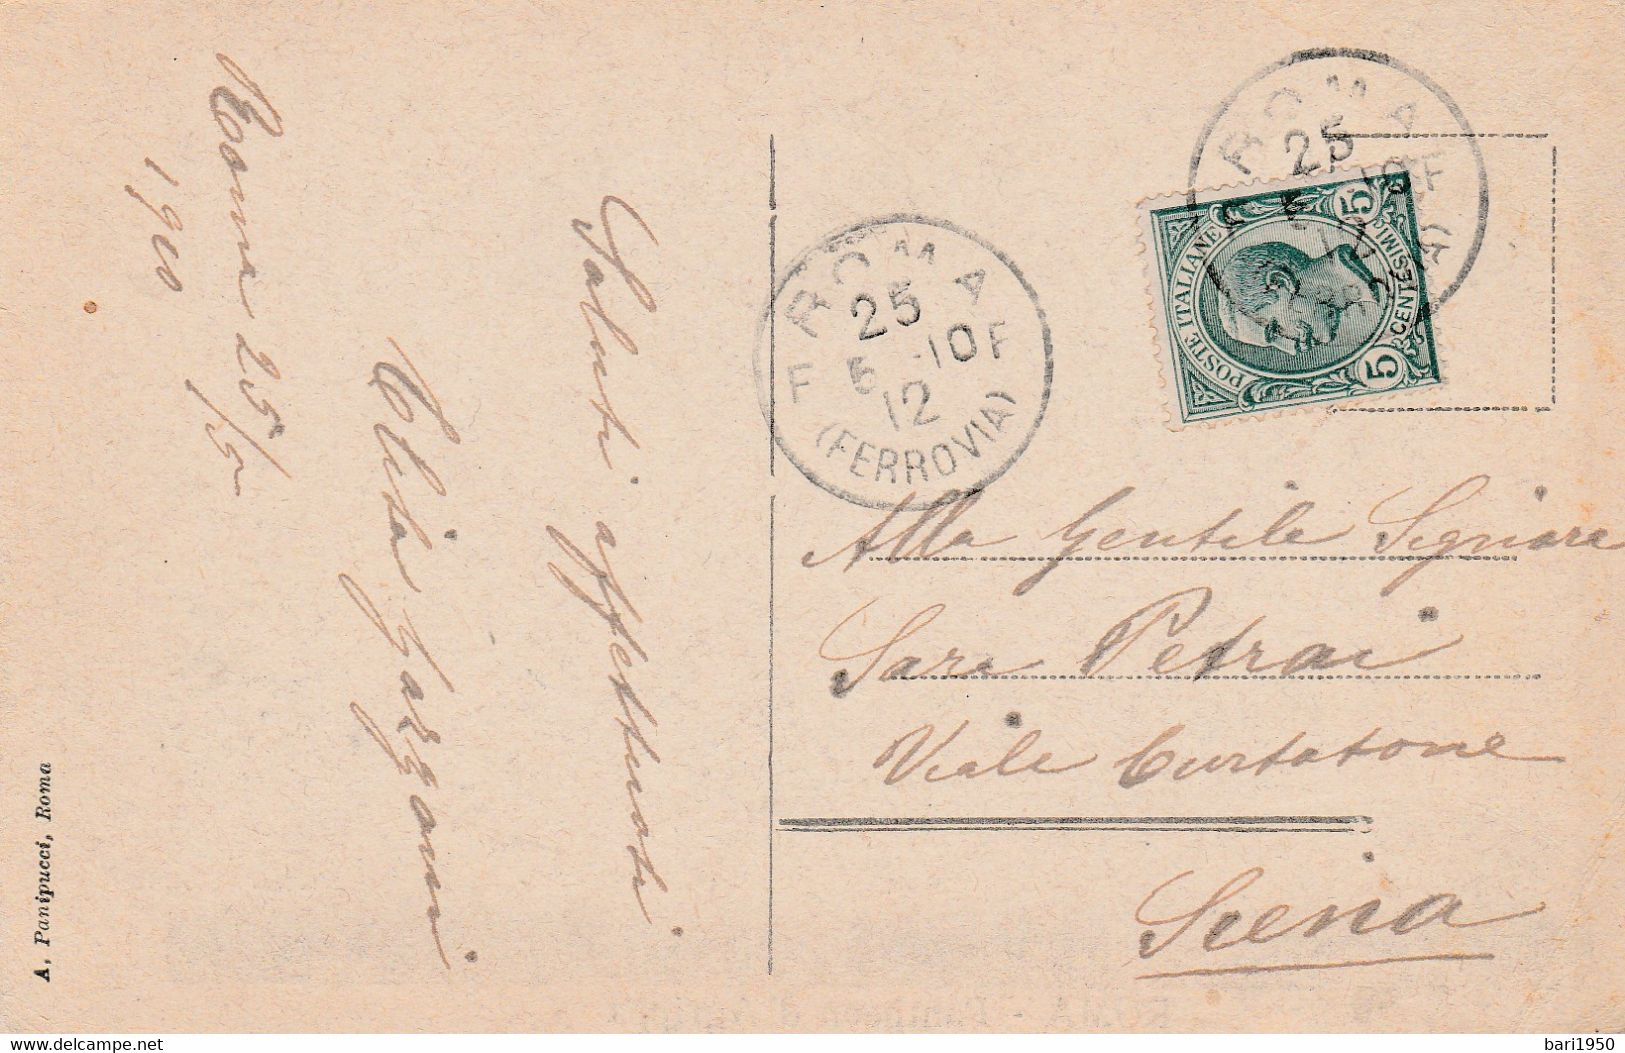 Roma 25/5
Saluti affettuosi
Gargani
A. Panipucci, Roma
ROMA
25
5 -10F
F
12
(FERROVIA)
ROMA
25
POSTE ITALIANE
5 CENTESIMI 5
Alla Gentile Signora
Sara Petrai
Viale Curtatone
Siena
bari1950
delcampe.net